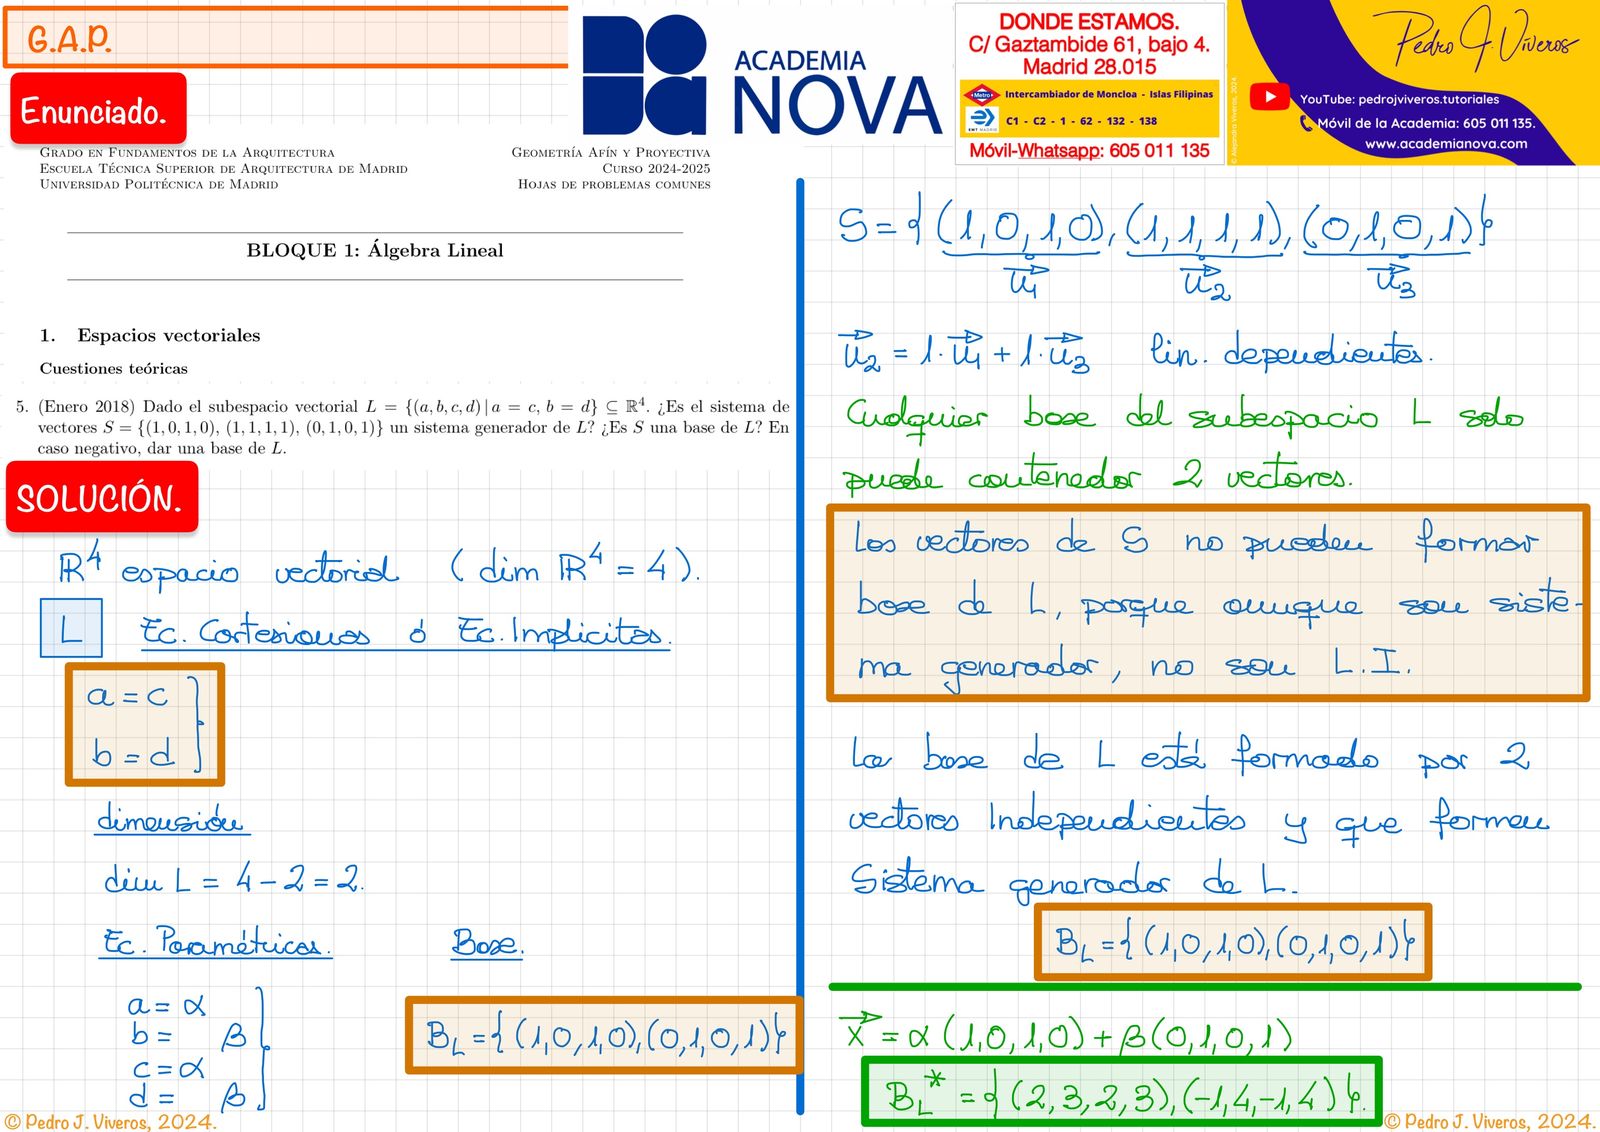 G.A.P.
Enunciado.
ACADEMIA
NOVA
DONDE ESTAMOS.
C/ Gaztambide 61, bajo 4.
Madrid 28.015
Metro
Intercambiador de Moncloa - Islas Filipinas
EMT MADRID
C1 - C2 - 1 - 62 - 132 - 138
Móvil-Whatsapp: 605 011 135
Pedro J. Viveros
YouTube: pedrojviveros.tutoriales
Móvil de la Academia: 605 011 135.
www.academianova.com
© Alejandra Viveros, 2024.
GRADO EN FUNDAMENTOS DE LA ARQUITECTURA
ESCUELA TÉCNICA SUPERIOR DE ARQUITECTURA DE MADRID
UNIVERSIDAD POLITÉCNICA DE MADRID
GEOMETRÍA AFÍN Y PROYECTIVA
CURSO 2024-2025
HOJAS DE PROBLEMAS COMUNES
BLOQUE 1: Álgebra Lineal
1. Espacios vectoriales
Cuestiones teóricas
5. (Enero 2018) Dado el subespacio vectorial L = {(a, b, c, d) | a = c, b = d} ⊆ ℝ⁴. ¿Es el sistema de
vectores S = {(1, 0, 1, 0), (1, 1, 1, 1), (0, 1, 0, 1)} un sistema generador de L? ¿Es S una base de L? En
caso negativo, dar una base de L.
SOLUCIÓN.
ℝ⁴ espacio vectorial (dim ℝ⁴ = 4).
L Ec. Cartesianas ó Ec. Implicitas.
a = c
b = d }
dimensión
dim L = 4 - 2 = 2.
Ec. Paramétricas. Base.
a = α
b = β
c = α
d = β }
B_L = {(1,0,1,0),(0,1,0,1)}
S = {(1,0,1,0),(1,1,1,1),(0,1,0,1)}
u⃗₁ u⃗₂ u⃗₃
u⃗₂ = 1·u⃗₁ + 1·u⃗₃ lin. dependientes.
Cualquier base del subespacio L solo
puede contenedor 2 vectores.
Los vectores de S no pueden formar
base de L, porque aunque son siste-
ma generador, no son L.I.
La base de L está formado por 2
vectores Independientes y que formen
Sistema generador de L.
B_L = {(1,0,1,0),(0,1,0,1)}
x⃗ = α(1,0,1,0) + β(0,1,0,1)
B_L* = {(2,3,2,3),(-1,4,-1,4)}.
© Pedro J. Viveros, 2024.
© Pedro J. Viveros, 2024.